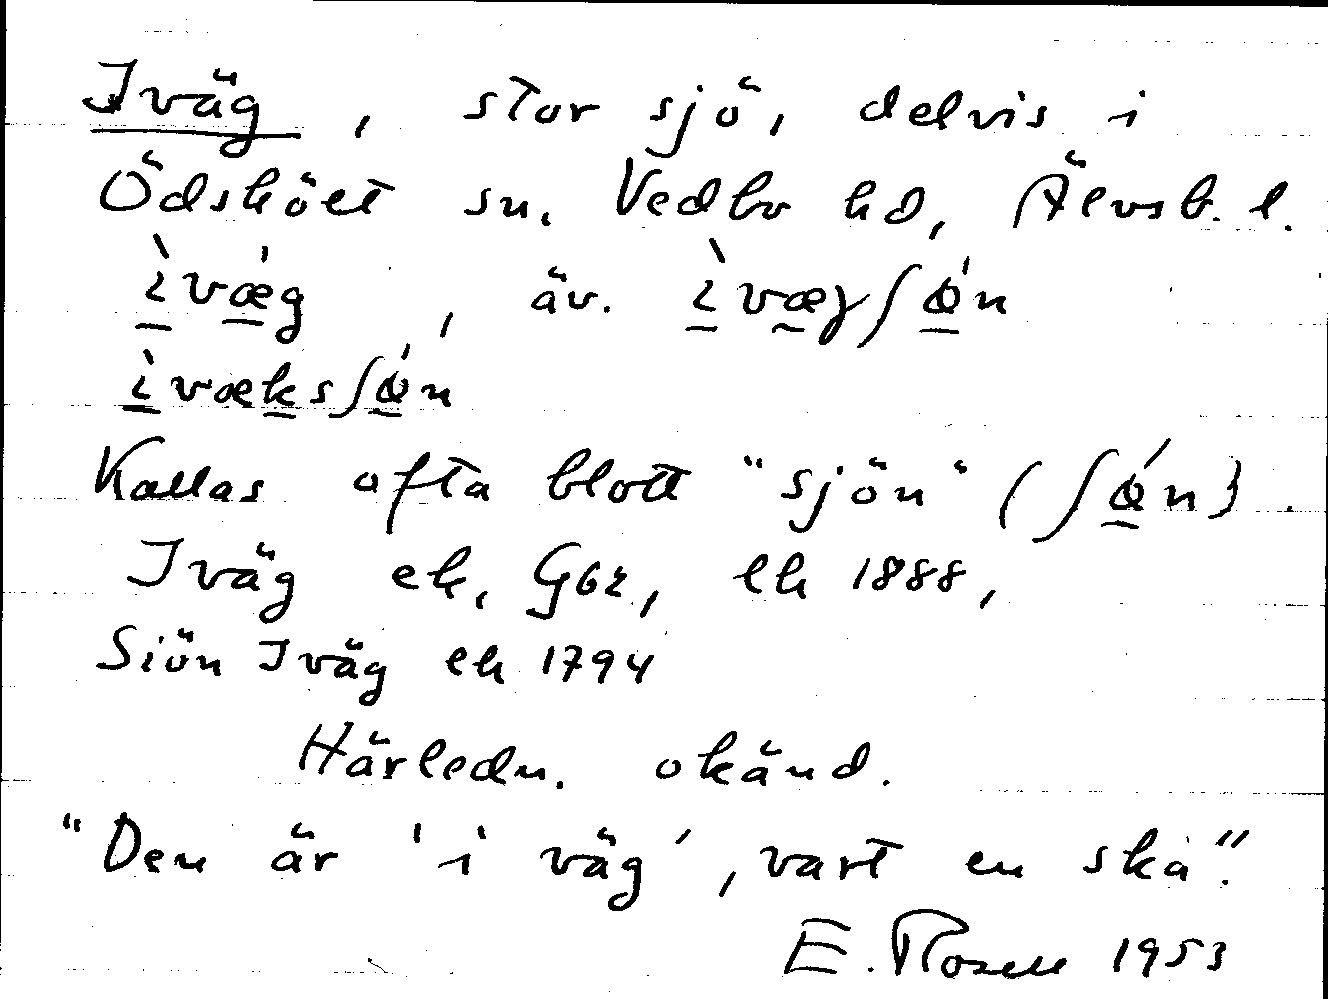 Iväg, stor sjö, delvis i
Ödskölt sn. Vedbo hd, Älvsb. l.
ìvǽg, äv. ìvæɣʃǿn
ìvæksʃǿn
Kallas ofta blott "sjön" (ʃǿn).
Iväg ek, Gbz, lk 1888,
Siön Iväg ek 1794
Härledn. okänd.
"Den är 'i väg', vart en ska".
E. Rosell 1953